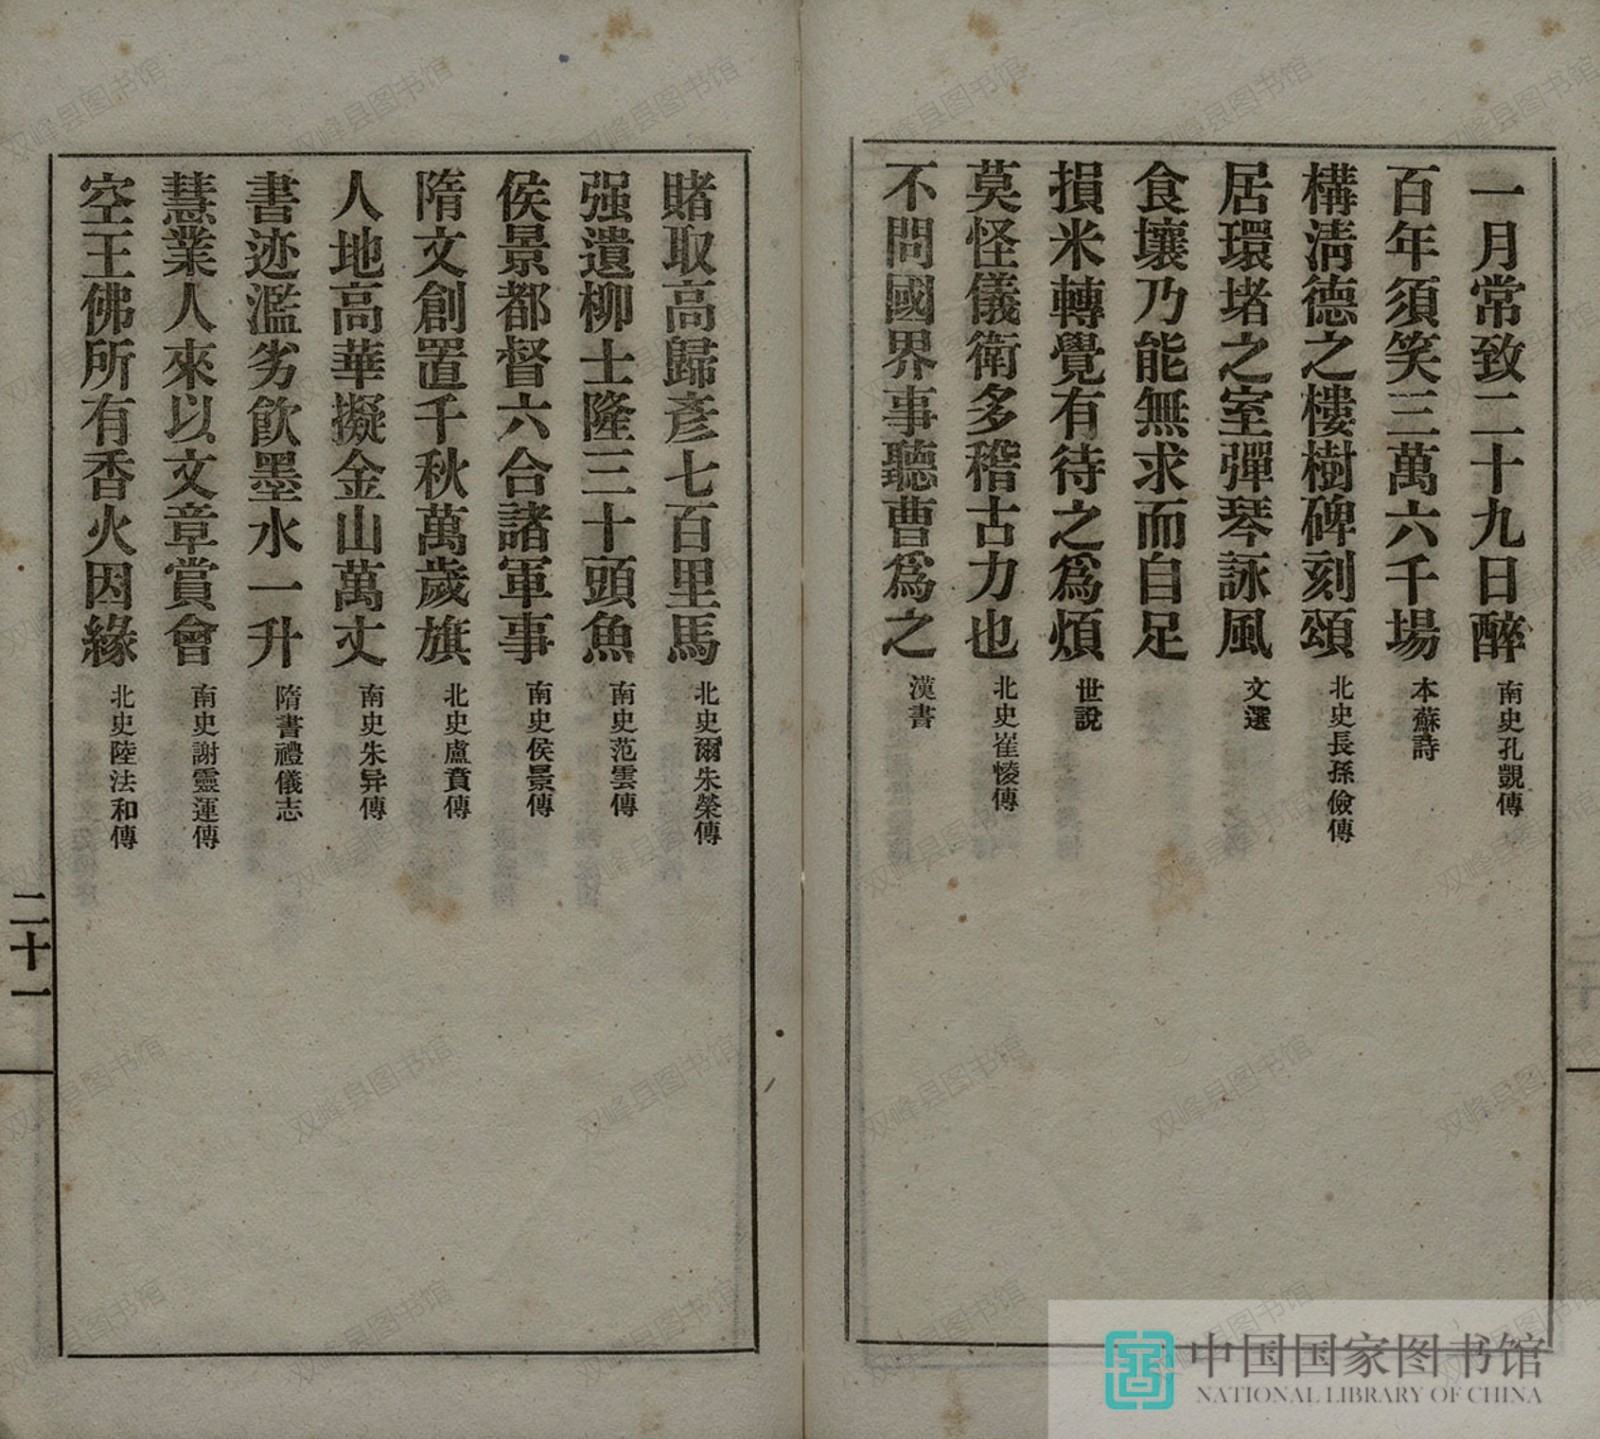 一月常致二十九日醉 南史孔覬傳
百年須笑三萬六千場 本蘇詩
構淸德之樓樹碑刻頌 北史長孫儉傳
居環堵之室彈琴詠風 文選
食壤乃能無求而自足
損米轉覺有待之爲煩 世說
莫怪儀衛多稽古力也 北史崔㥄傳
不問國界事聽曹爲之 漢書
賭取高歸彥七百里馬 北史爾朱榮傳
强遺柳士隆三十頭魚 南史范雲傳
侯景都督六合諸軍事 南史侯景傳
隋文創置千秋萬歲旗 北史盧賁傳
人地高華擬金山萬丈 南史朱异傳
書迹濫劣飮墨水一升 隋書禮儀志
慧業人來以文章賞會 南史謝靈運傳
空王佛所有香火因緣 北史陸法和傳
二十一
中国国家图书馆
NATIONAL LIBRARY OF CHINA
双峰县图书馆